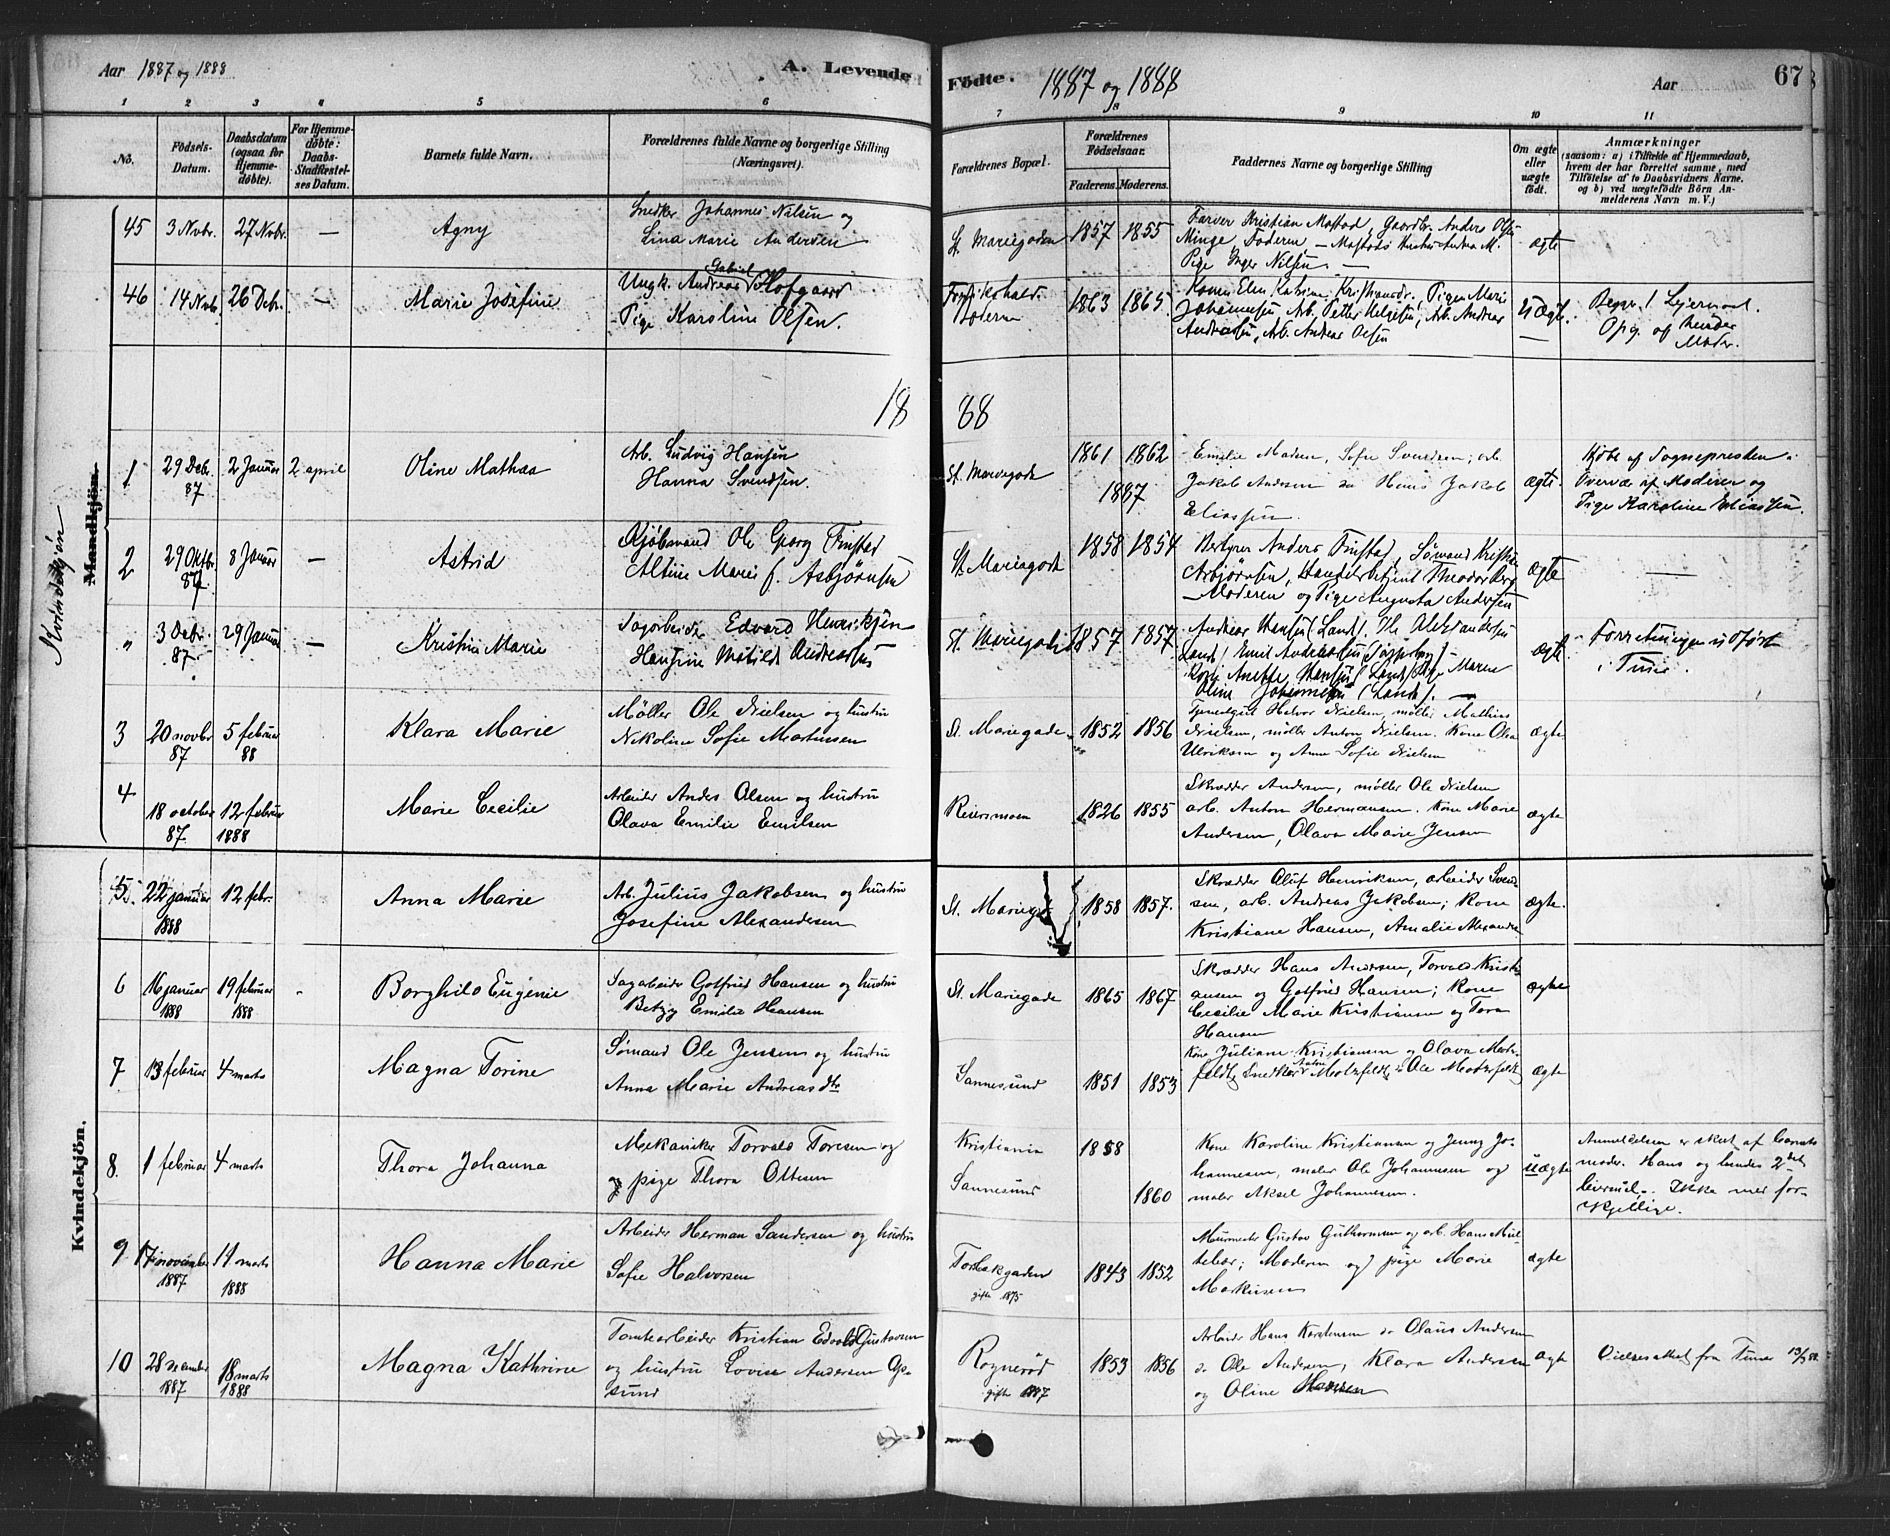 Aar 1887 og 1888
A. Levende
Födte.
1887 og 1888
Aar
67
1 2 3 4 5 6 7 8 9 10 11
No.
Födsels-
Datum.
Daabsdatum
(ogsaa for
Hjemme-
döbte).
For Hjemme-
döbte:
Daabs-
Stadfæstel-
ses Datum.
Barnets fulde Navn.
Forældrenes fulde Navne og borgerlige Stilling
(Næringsvei).
Forældrenes Bopæl.
Forældrenes
Födselsaar.
Faderens.
Moderens.
Faddernes Navne og borgerlige Stilling
Om ægte
eller
uægte
födt.
Anmærkninger
(saasom: a) i Tilfælde af Hjemmedaab,
hvem der har forrettet samme, med
Tilföielse af to Daabsvidners Navne.
og b) ved uægtefödte Börn An-
melderens Navn m. V.)
Mandkjön.
Kvindekjön
45 3 Novbr. 27 Novbr. —
Agny
Snedker Johannes Nilsen og
Lina Marie Andersen
St. Mariegaden
1857 1855
Farver Kristian Mostad, Gaardbr. Anders Olsen
Minge, Moderen, —
Pige Inger Nilsen —
ægte
46 14 Novbr. 26 Debr. —
Marie Josefine
Ungk. Andreas Gabriel Hofgaard
Pige Karoline Olsen.
Fredrikshald.
Moderen
1863 1865
Konen Elen Katrine Kristiansdr., Pigen Marie
Johannesen, Arb. Petter Helgesen, Arb. Andreas
Andreasen, Arb. Andreas Olsen
Uægte.
Begges 1. Leiermaal.
Opg. af hendes
Moder.
1888
1 29 Debr. 87 2 Januar 2 april
Oline Mathea
Arb. Ludvig Hansen
Hanna Svendsen.
St. Mariegade
1861 1862
1887
Emilie Madsen, Sofie Svendsen; arb.
Jakob Andersen do Hans Jakob
Eliassen.
ægte
Døbt af Sognepresten.
Overvær af Moderen og
Pige Karoline Eliassen.
2 29 Oktbr. 87 8 Januar —
Astrid
Kjøbmand Ole Georg Finstad
Altine Marie f. Asbjørnsen
St. Mariegade
1858 1854
Anders Finstad, Sømand Kristian
Asbjørnsen, Handelsbetjent Theodor Berg
Moderen og Pige Augusta Andersen
ægte
—
" 3 Debr. 87 29 Januar —
Kristine Marie
Sagarbeider Edvard Henriksen
Hansine Matilde Andreasen
St. Mariegade
1857 1857
Andreas Hansen (Lande). Ole Alexandersen
(Lande) Emil Andreassen
Kone Anette Hansen (Lande) Pige Maren
Oline Johannesen (Lande). —
ægte
Forretningen indført
i Tune.
3 20 novbr 87 5 februar 88
Klara Marie
Møller Ole Nielsen og hustru
Nikoline Sofie Martinsen
St. Mariegade
1852 1856
Tjenestgut Halvor Nielsen, møller Mathias
Nielsen, møller Anton Nielsen. Kone Olea
Ulriksen og Anne Sofie Nielsen
ægte
4 18 october 87. 12 februar 1888
Marie Cecilie
Arbeider Anders Olsen og hustru
Olava Emilie Emilsen
Reiersmoen
1826 1855
Skrædder Andersen, møller Ole Nielsen
arb. Anton Hermansen. Kone Marie
Andersen, Olava Marie Jensen
ægte
Kvindekjön.
5. 22 januar 1888 12 febr.
Anna Marie
Arb. Julius Jakobsen og hustru
Josefine Alexandersen
St. Mariegt
1858 1857.
Skrædder Oluf Henriksen, arbeider Svend-
sen, arb. Andreas Jakobsen; Kone
Kristiane Hansen, Amalie Alexandre
ægte.
6 16 januar 1888 19 februar 1888
Borghild Eugenie
Sagarbeider Gotfried Hansen og hustru
Betzy Emilie Hansen
St. Mariegade
1865 1867
Skrædder Hans Andersen, Torvald Kristi-
ansen og Gotfried Hansen; Kone
Cecilie Marie Kristiansen og Tora
Hansen
ægte
7 13 februar 4 marts
Magna Torine
Sømand Ole Jensen og hustru
Anna Marie Andreasdtr
Sannesund
1851 1853
Kone Juliane Kristiansen og Olava Motz-
feldt, Snedker Anton Motzfeldt, Ole Motzfeldt
ægte
8. 1 februar 4 marts
Thora Johanna
Mekaniker Torvald Toresen og
pige Thora Ottesen
Kristiania
Sannesund
1858
1860
Kone Karoline Kristiansen og Jenny Jo-
hannesen, maler Ole Johannesen og
maler Aksel Johannesen.
uægte
Anmeldelsen er skeet af barnets
moder. Hans og hendes 2det
leiermaal. Ikke nær for-
skyldige.
9 17 november 1887 11 marts 1888
Hanna Marie
Arbeider Herman Sandersen og hustru
Sofie Halvorsen
Torbakgaden
gifte 1875
1843 1852
Murmester Gustav Guthormsen og arb. Hans
Moderen og pige Marie
Markusen
ægte
10 28 november 1887 18 marts 1888
Magna Kathrine
Tomtearbeider Kristian Edvald Gustavsen
og hustru Lovise Andersen Op-
sund
Rognerød
gifte 1887
1853 1856
Arbeider Hans Karstensen do Olaus Andersen
do Ole Andersen, Klara Andersen
og Oline Hansen
ægte
Vielsesattest fra Tune